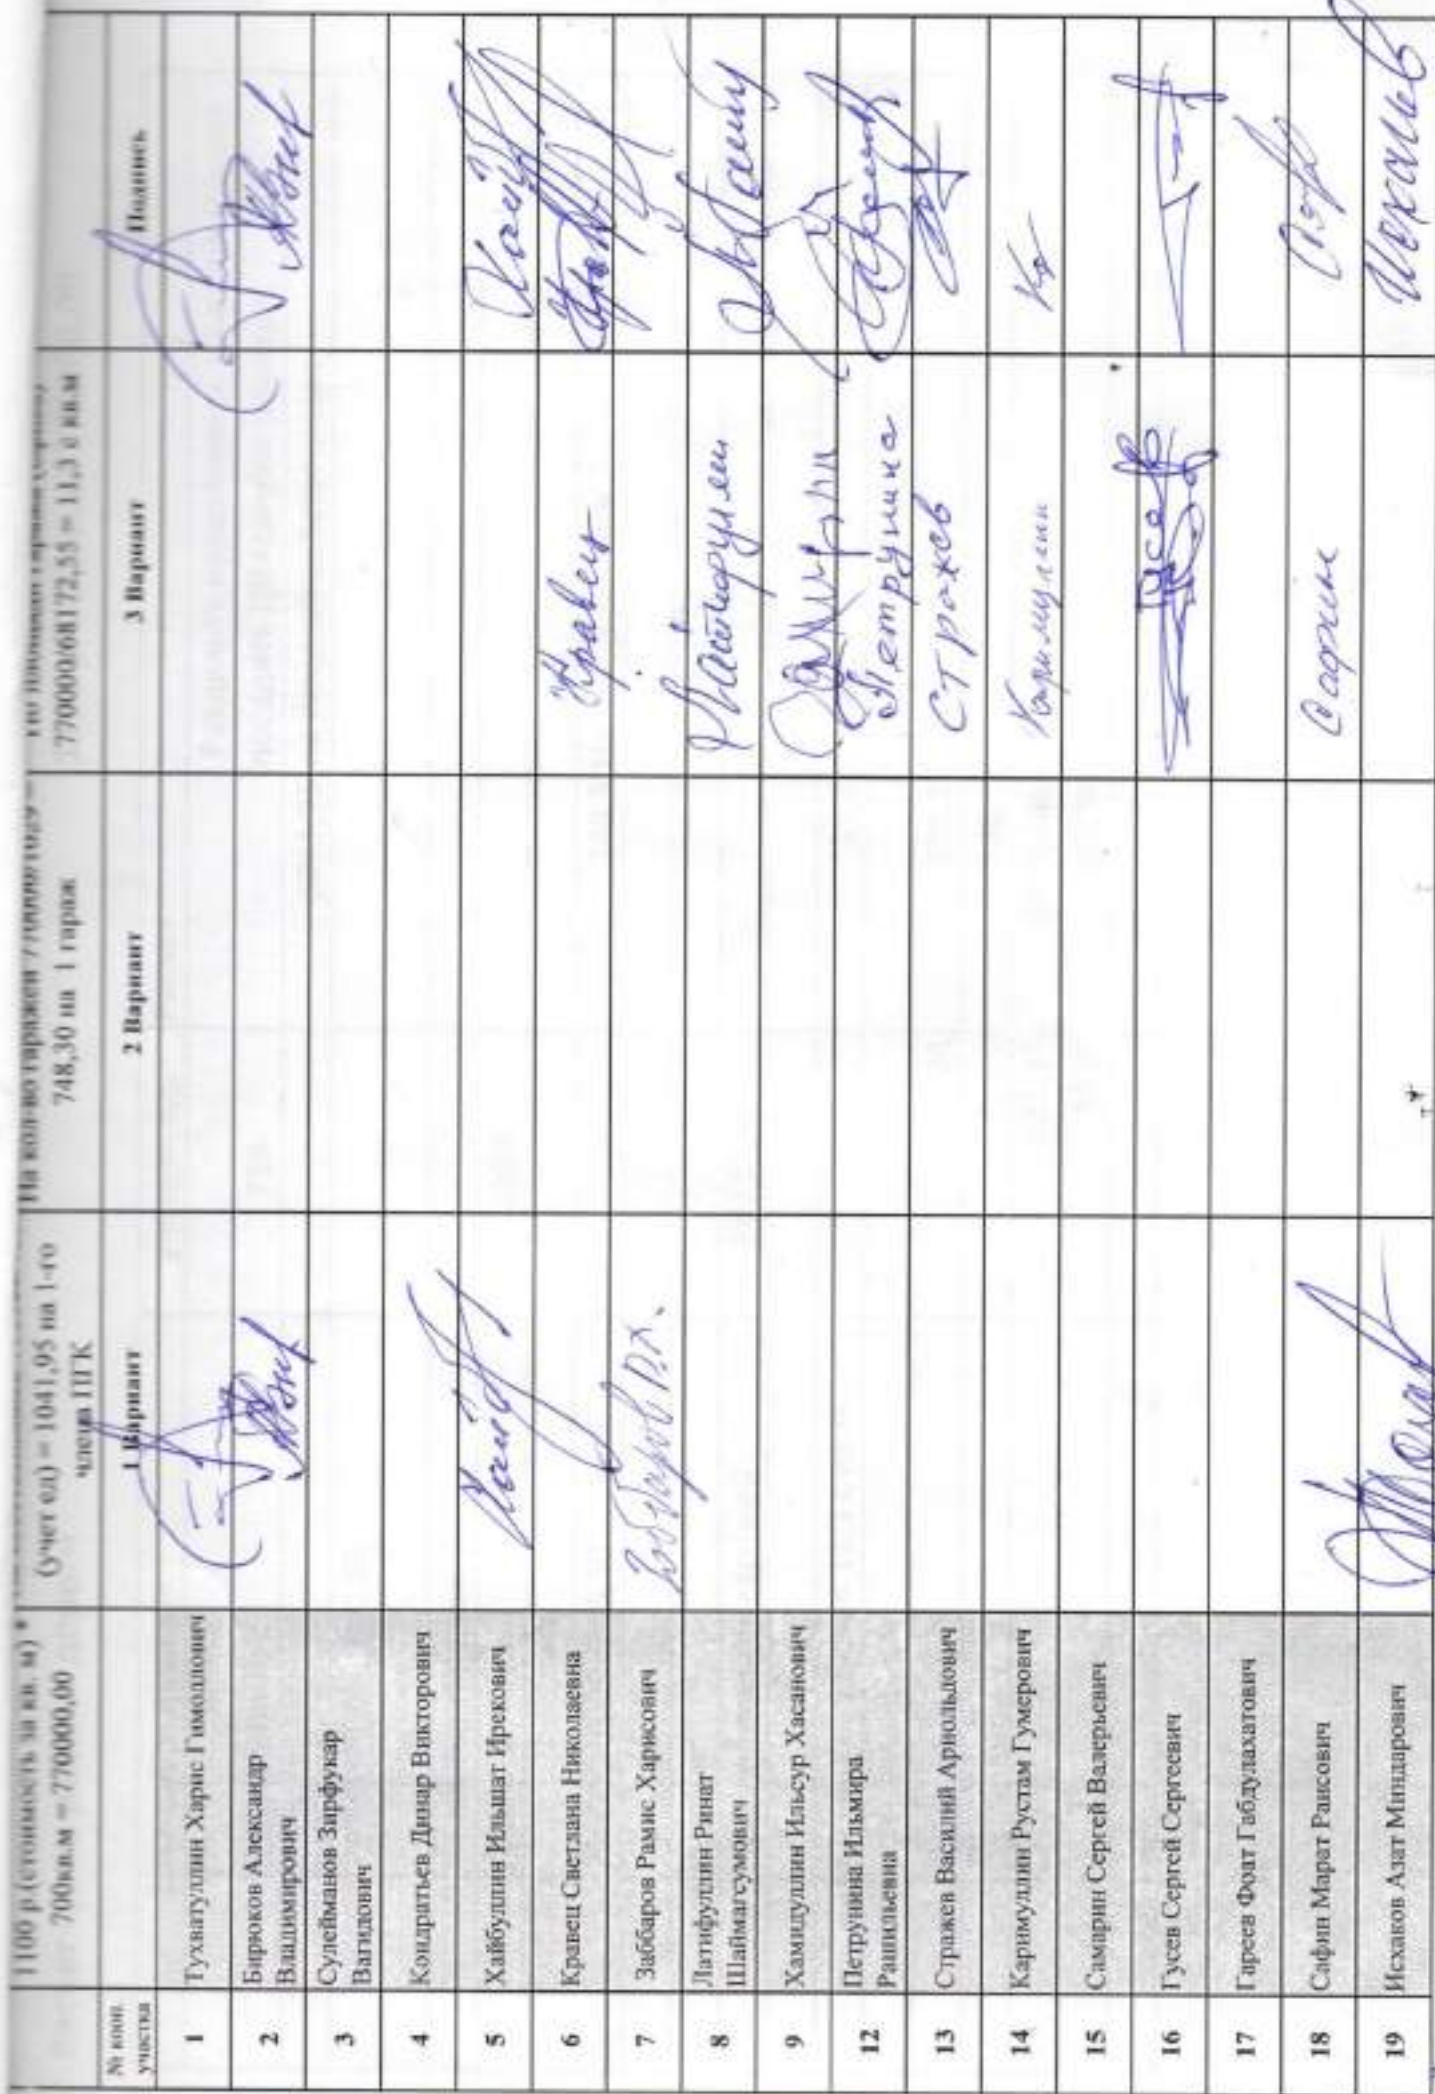 1100 р (стоимость за кв. м) *
700кв.м = 770000,00
(учет ед) = 1041,95 на 1-го
члена ПГК
На кол-во гаражей
748,30 на 1 гараж
770000/68172,55 = 11,3 с кв.м
№ кооп. участка
1 Вариант
2 Вариант
3 Вариант
Подпись
1 Тухватуллин Харис Гимоллович
2 Бирюков Александр
Владимирович
3 Сулейманов Зирфукар
Вагидович
4 Кондратьев Динар Викторович
5 Хайбуллин Ильшат Ирекович
6 Кравец Светлана Николаевна Кравец
7 Заббаров Рамис Харисович Заббаров Р.Х.
8 Латифуллин Ринат
Шаймагсумович
9 Хамидуллин Ильсур Хасанович
12 Петрунина Ильмира
Раильевна Петрунина
13 Стражев Василий Арнольдович Стражев
14 Каримуллин Рустам Гумерович Каримуллин
15 Самарин Сергей Валерьевич
16 Гусев Сергей Сергеевич Гусев
17 Гареев Фоат Габдулахатович
18 Сафин Марат Раисович Сафин
19 Исхаков Азат Миндарович Исхаков